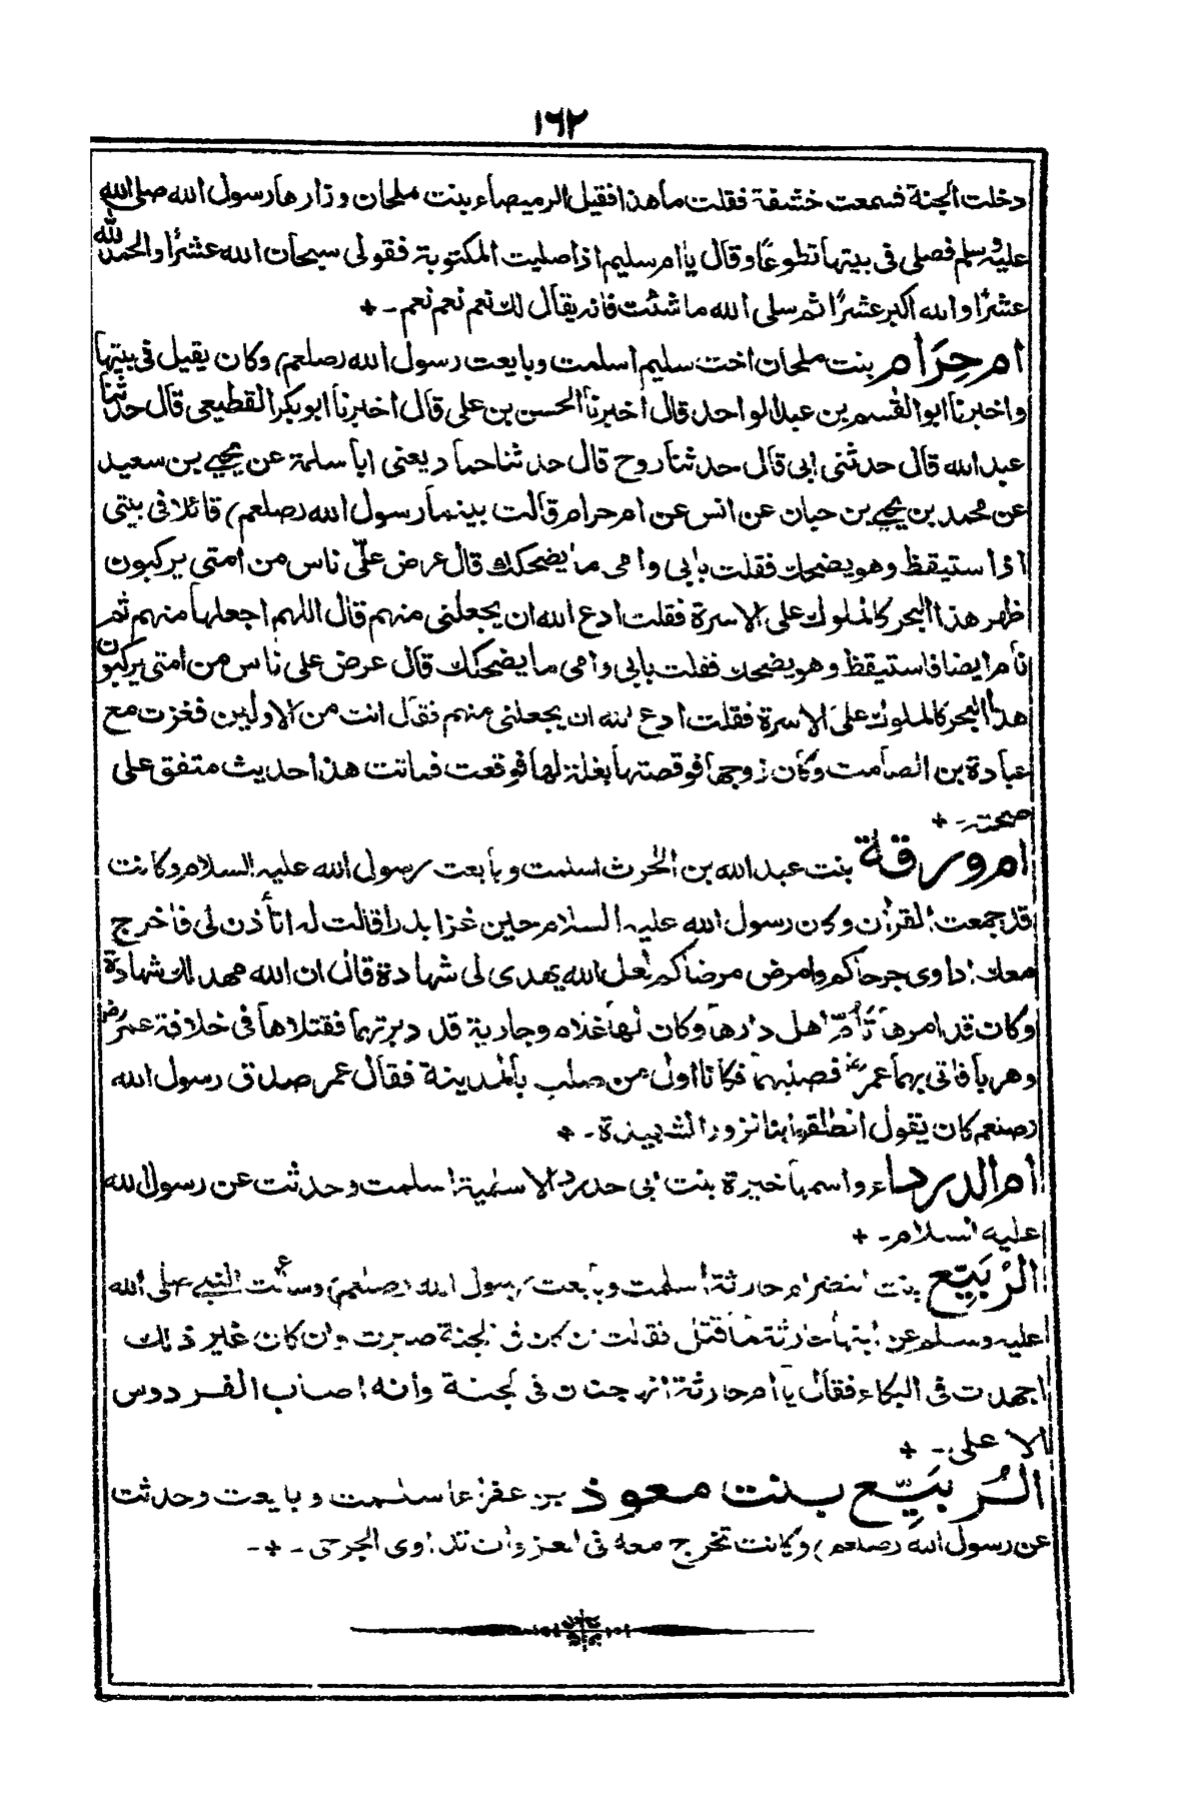 ١٦٢
دخلت الجنة فسمعت خشفة فقلت ما هذا فقيل الرميصاء بنت ملحان وزارها رسول الله صلى الله
عليه وسلم فصلى فى بيتها تطوعًا وقال يا ام سليم اذا صليت المكتوبة فقولى سبحان الله عشرًا والحمد لله
عشرًا والله اكبر عشرًا ثم سلى الله ما شئت فانه يقال لك نعم نعم نعم ـ +
ام حِرَام بنت ملحان اخت سليم اسلمت وبايعت رسول الله (صلعم) وكان يقيل فى بيتها
واخبرنا ابو القسم بن عبد الواحد قال اخبرنا الحسن بن على قال اخبرنا ابو بكر القطيعى قال حدثنا
عبد الله قال حدثنى ابى قال حدثنا روح قال حدثنا حماد يعنى ابا سلمة عن يحيى بن سعيد
عن محمد بن يحيى بن حبان عن انس عن ام حرام قالت بينما رسول الله (صلعم) قائلا فى بيتى
اذا ستيقظ وهو يضحك فقلت بابى وامى ما يضحكك قال عرض علىّ ناس من امتى يركبون
ظهر هذا البحر كالملوك على الاسرة فقلت ادع الله ان يجعلنى منهم قال اللهم اجعلها منهم ثم
نام ايضا فاستيقظ وهو يضحك فقلت بابى وامى ما يضحكك قال عرض على ناس من امتى يركبون
هذا البحر كالملوك على الاسرة فقلت ادع الله ان يجعلنى منهم فقال انت من الاولين فغزت مع
عبادة بن الصامت وكان زوجها فوقصتها بغلة لها فوقعت فماتت هذا حديث متفق على
صحته ـ +
ام ورقة بنت عبد الله بن الحٰرث اسلمت وبايعت رسول الله عليه السلام وكانت
قد جمعت القرآن وكان رسول الله عليه السلام حين غزا بدرا قالت له اتأذن لى فاخرج
معك اداوى جرحاكم وامرض مرضاكم لعل الله يهدى لى شهادة قال ان الله مهد لك شهادة
وكان قد امرها تؤمّ اهل دارها وكان لها غلام وجارية قد دبرتهما فقتلاها فى خلافة عمر رض
وهربا فاتى بهما عمر رض فصلبهما فكانا اول من صلب بالمدينة فقال عمر صدق رسول الله
(صلعم كان يقول انطلقوا بنا نزور الشهيدة ـ +
ام الدرداء واسمها خيرة بنت ابى حدرد الاسلمية اسلمت وحدثت عن رسول الله
عليه السلام ـ +
الرُبَيِّع بنت النضر ام حارثة اسلمت وبايعت رسول الله (صلعم) وسألت النبى صلى الله
عليه وسلم عن ابنها حارثة لما قتل فقالت ان كان فى الجنة صبرت وان كان غير ذلك
اجهدت فى البكاء فقال يا ام حارثة انها جنات فى الجنة وانه اصاب الفردوس
الاعلى ـ +
الرُبَيِّع بنت معوذ بن عفراء اسلمت وبايعت وحدثت
عن رسول الله (صلعم) وكانت تخرج معه فى الغزوات تداوى الجرحى ـ + ـ